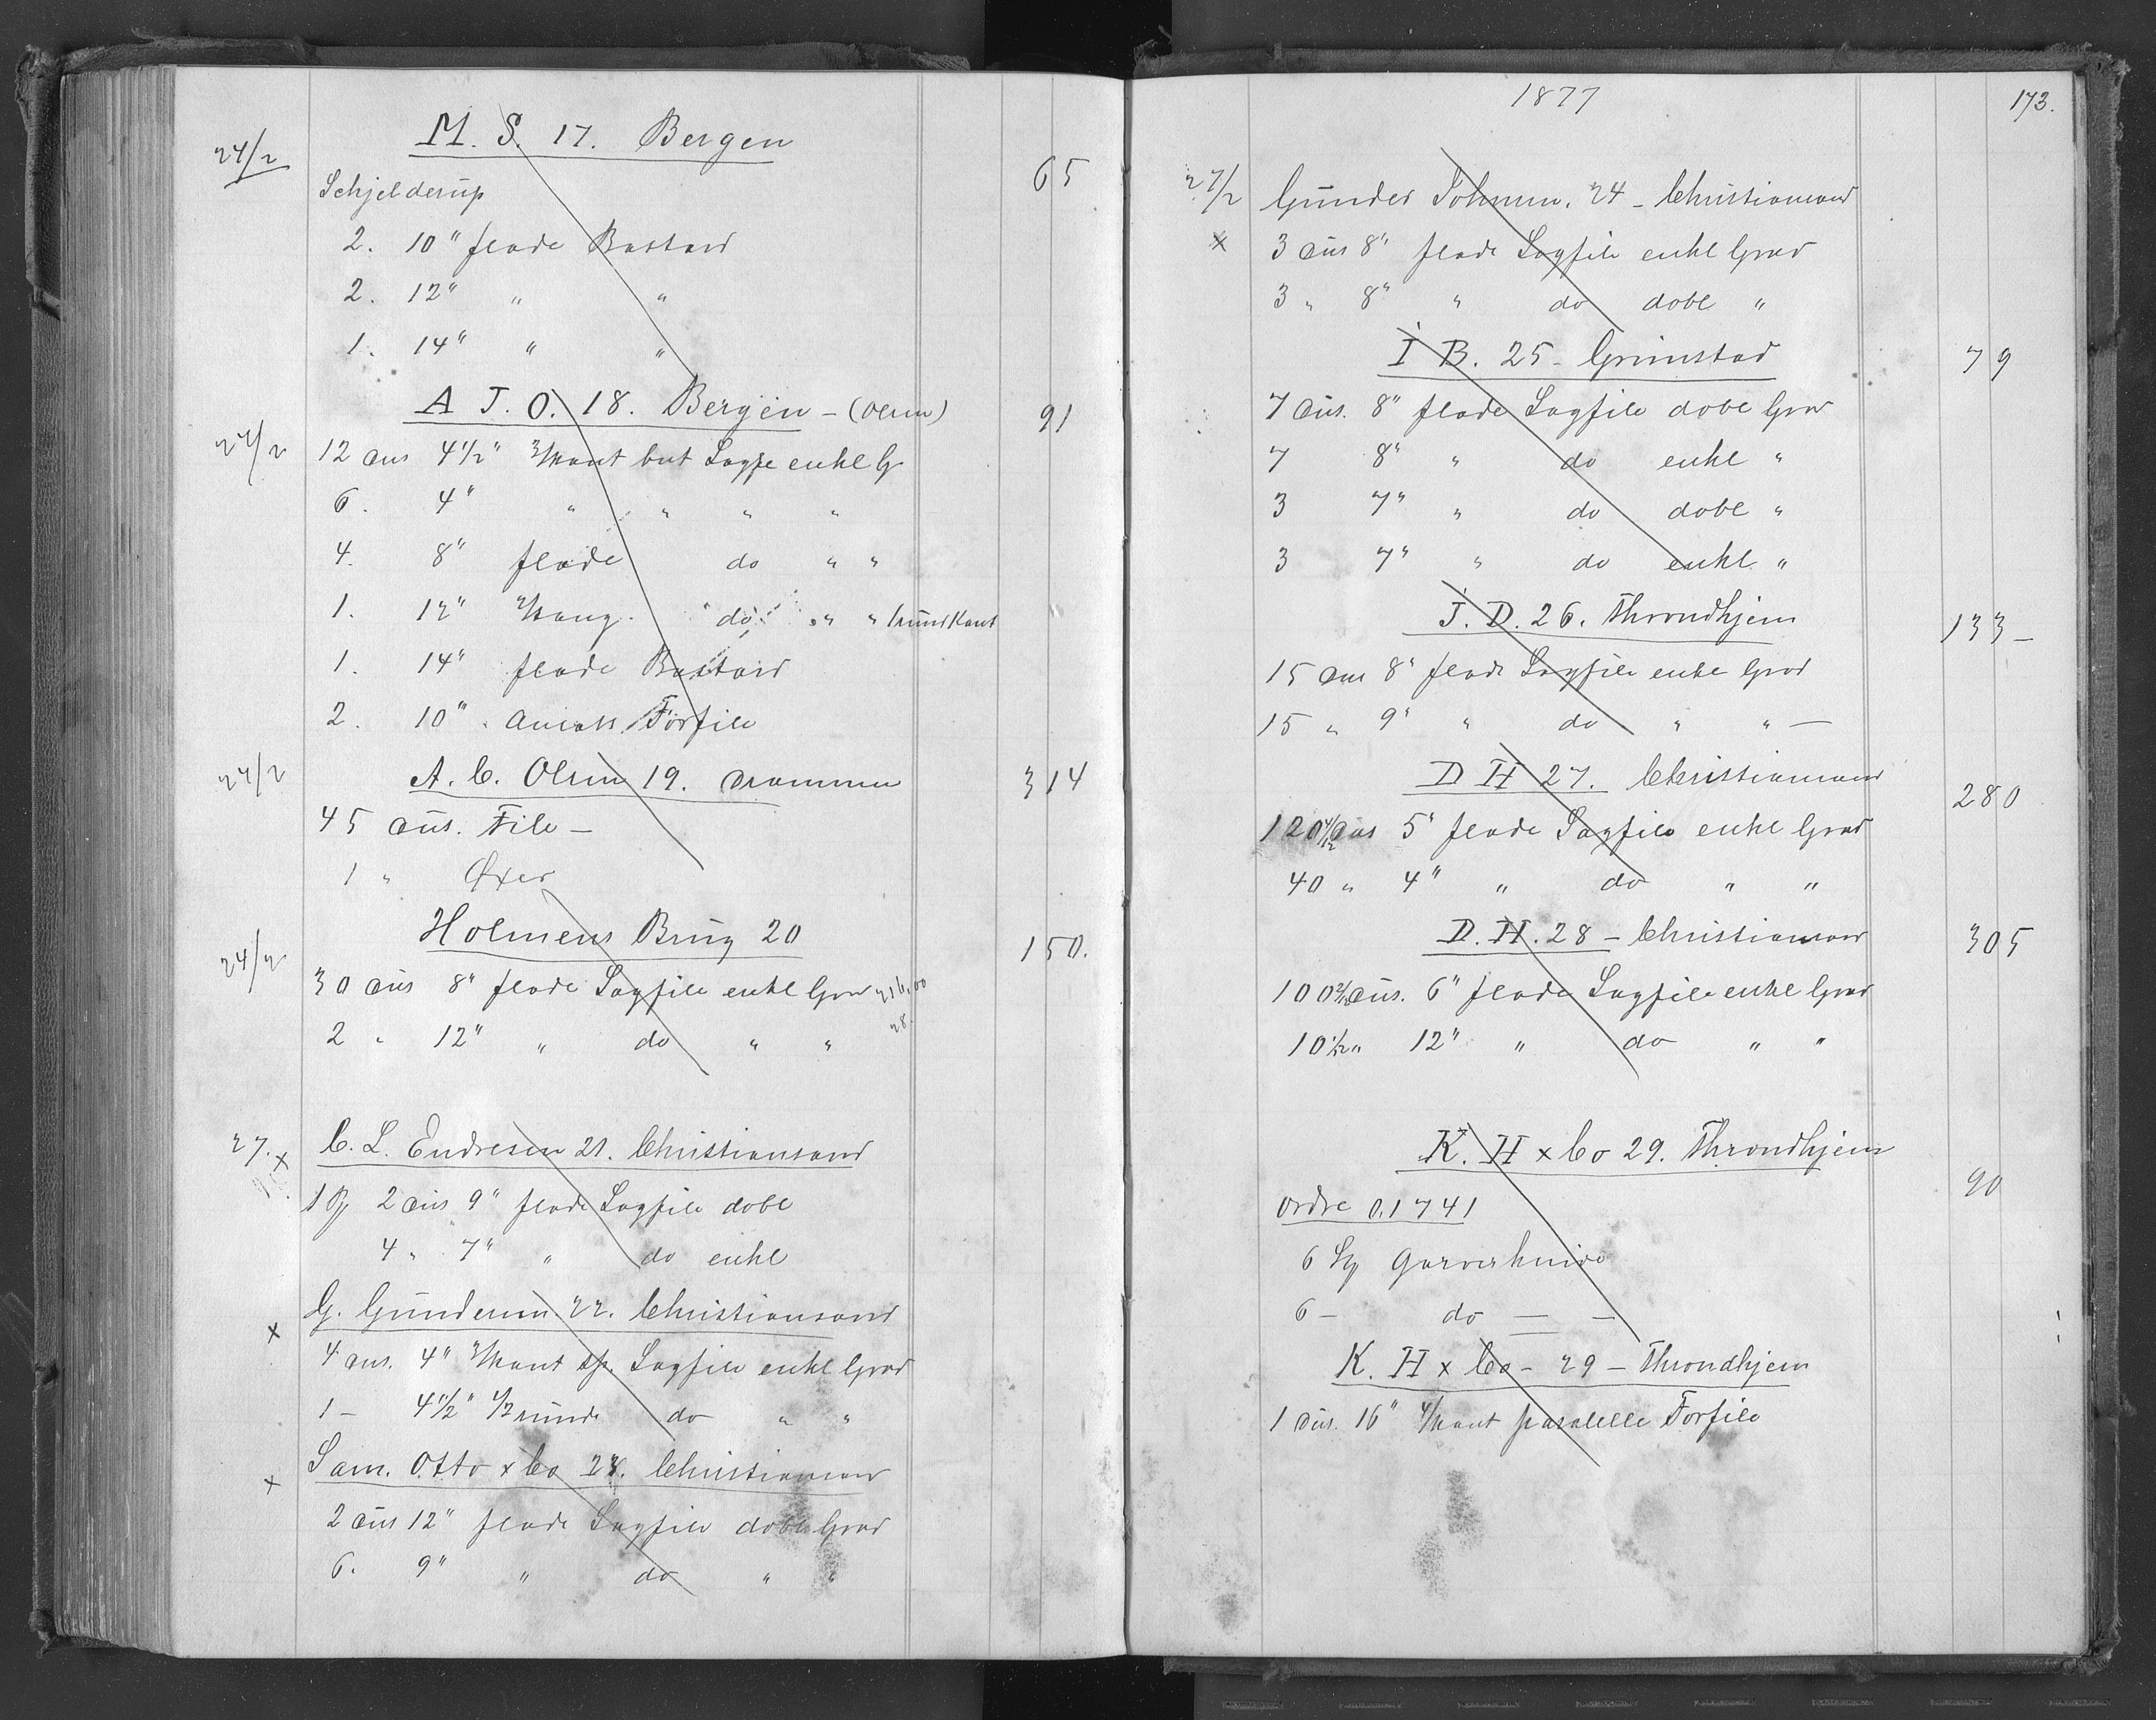 M. S. 17. Bergen
24/2 Schjelderup 65
2. 10" flade Bastard
2. 12" " "
1. 14" " "
A J. O. 18. Bergen - (Olsen) 91
24/2 12 dus 4 1/2" 3/kant but Sagfe enkel G
6. 4" " " " "
4. 8" flade do " "
1. 12" do " " 1 rund Kant
1. 14" flade Bastard
2. 10" Forfile
24/2 A. C. Olsen 19. Drammen 314
45 dus. File —
1 " Øxer
Holmens Brug 20
24/2 150.
30 dus 8" flade Sagfile enkel Grad 216,00
2 " 12" " do " " 28.
27. x C. L. Endresen 21. Christiansand
1 Pf 2 dus 9" flade Sagfile dobl
4 " 7" " do enkl
x G. Gundersen 22. Christiansand
4 dus. 4" 3/kant sp. Sagfile enkl Grad
1 - 4 1/2" 1/2 runde do " "
x Sam. Otto x Co 23. Christiansand
2 dus 12" flade Sagfile dobl Grad
6. 9" " do " "
1877
173.
27/2 Gunder Johnsen. 24 - Christiansand
x 3 dus 8" flade Sagfile enkl Grad
3 " 8" " do dobl "
I B. 25 - Grimstad 79
7 dus. 8" flade Sagfile dobl Grad
7 8" " do enkl "
3 7" " do dobl "
3 7" " do enkl "
J. D. 26. Throndhjem 133 -
15 dus 8" flade Sagfile enkl Grad
15 " 9" " do " " —
D H 27. Christiansand 280
120 4/12 dus 5" flade Sagfile enkl Grad
40 " 4" " do " "
D. H. 28 - Christiansand 305
100 2/12 dus. 6" flade Sagfile enkl Grad
10 1/12 " 12" " do " "
K. H x Co 29. Throndhjem
90
Ordre 0.1741
6 Garverknive
6 - do — -
K. H x Co - 29 - Throndhjem
1 dus. 16" 4/kant paralelle Forfile